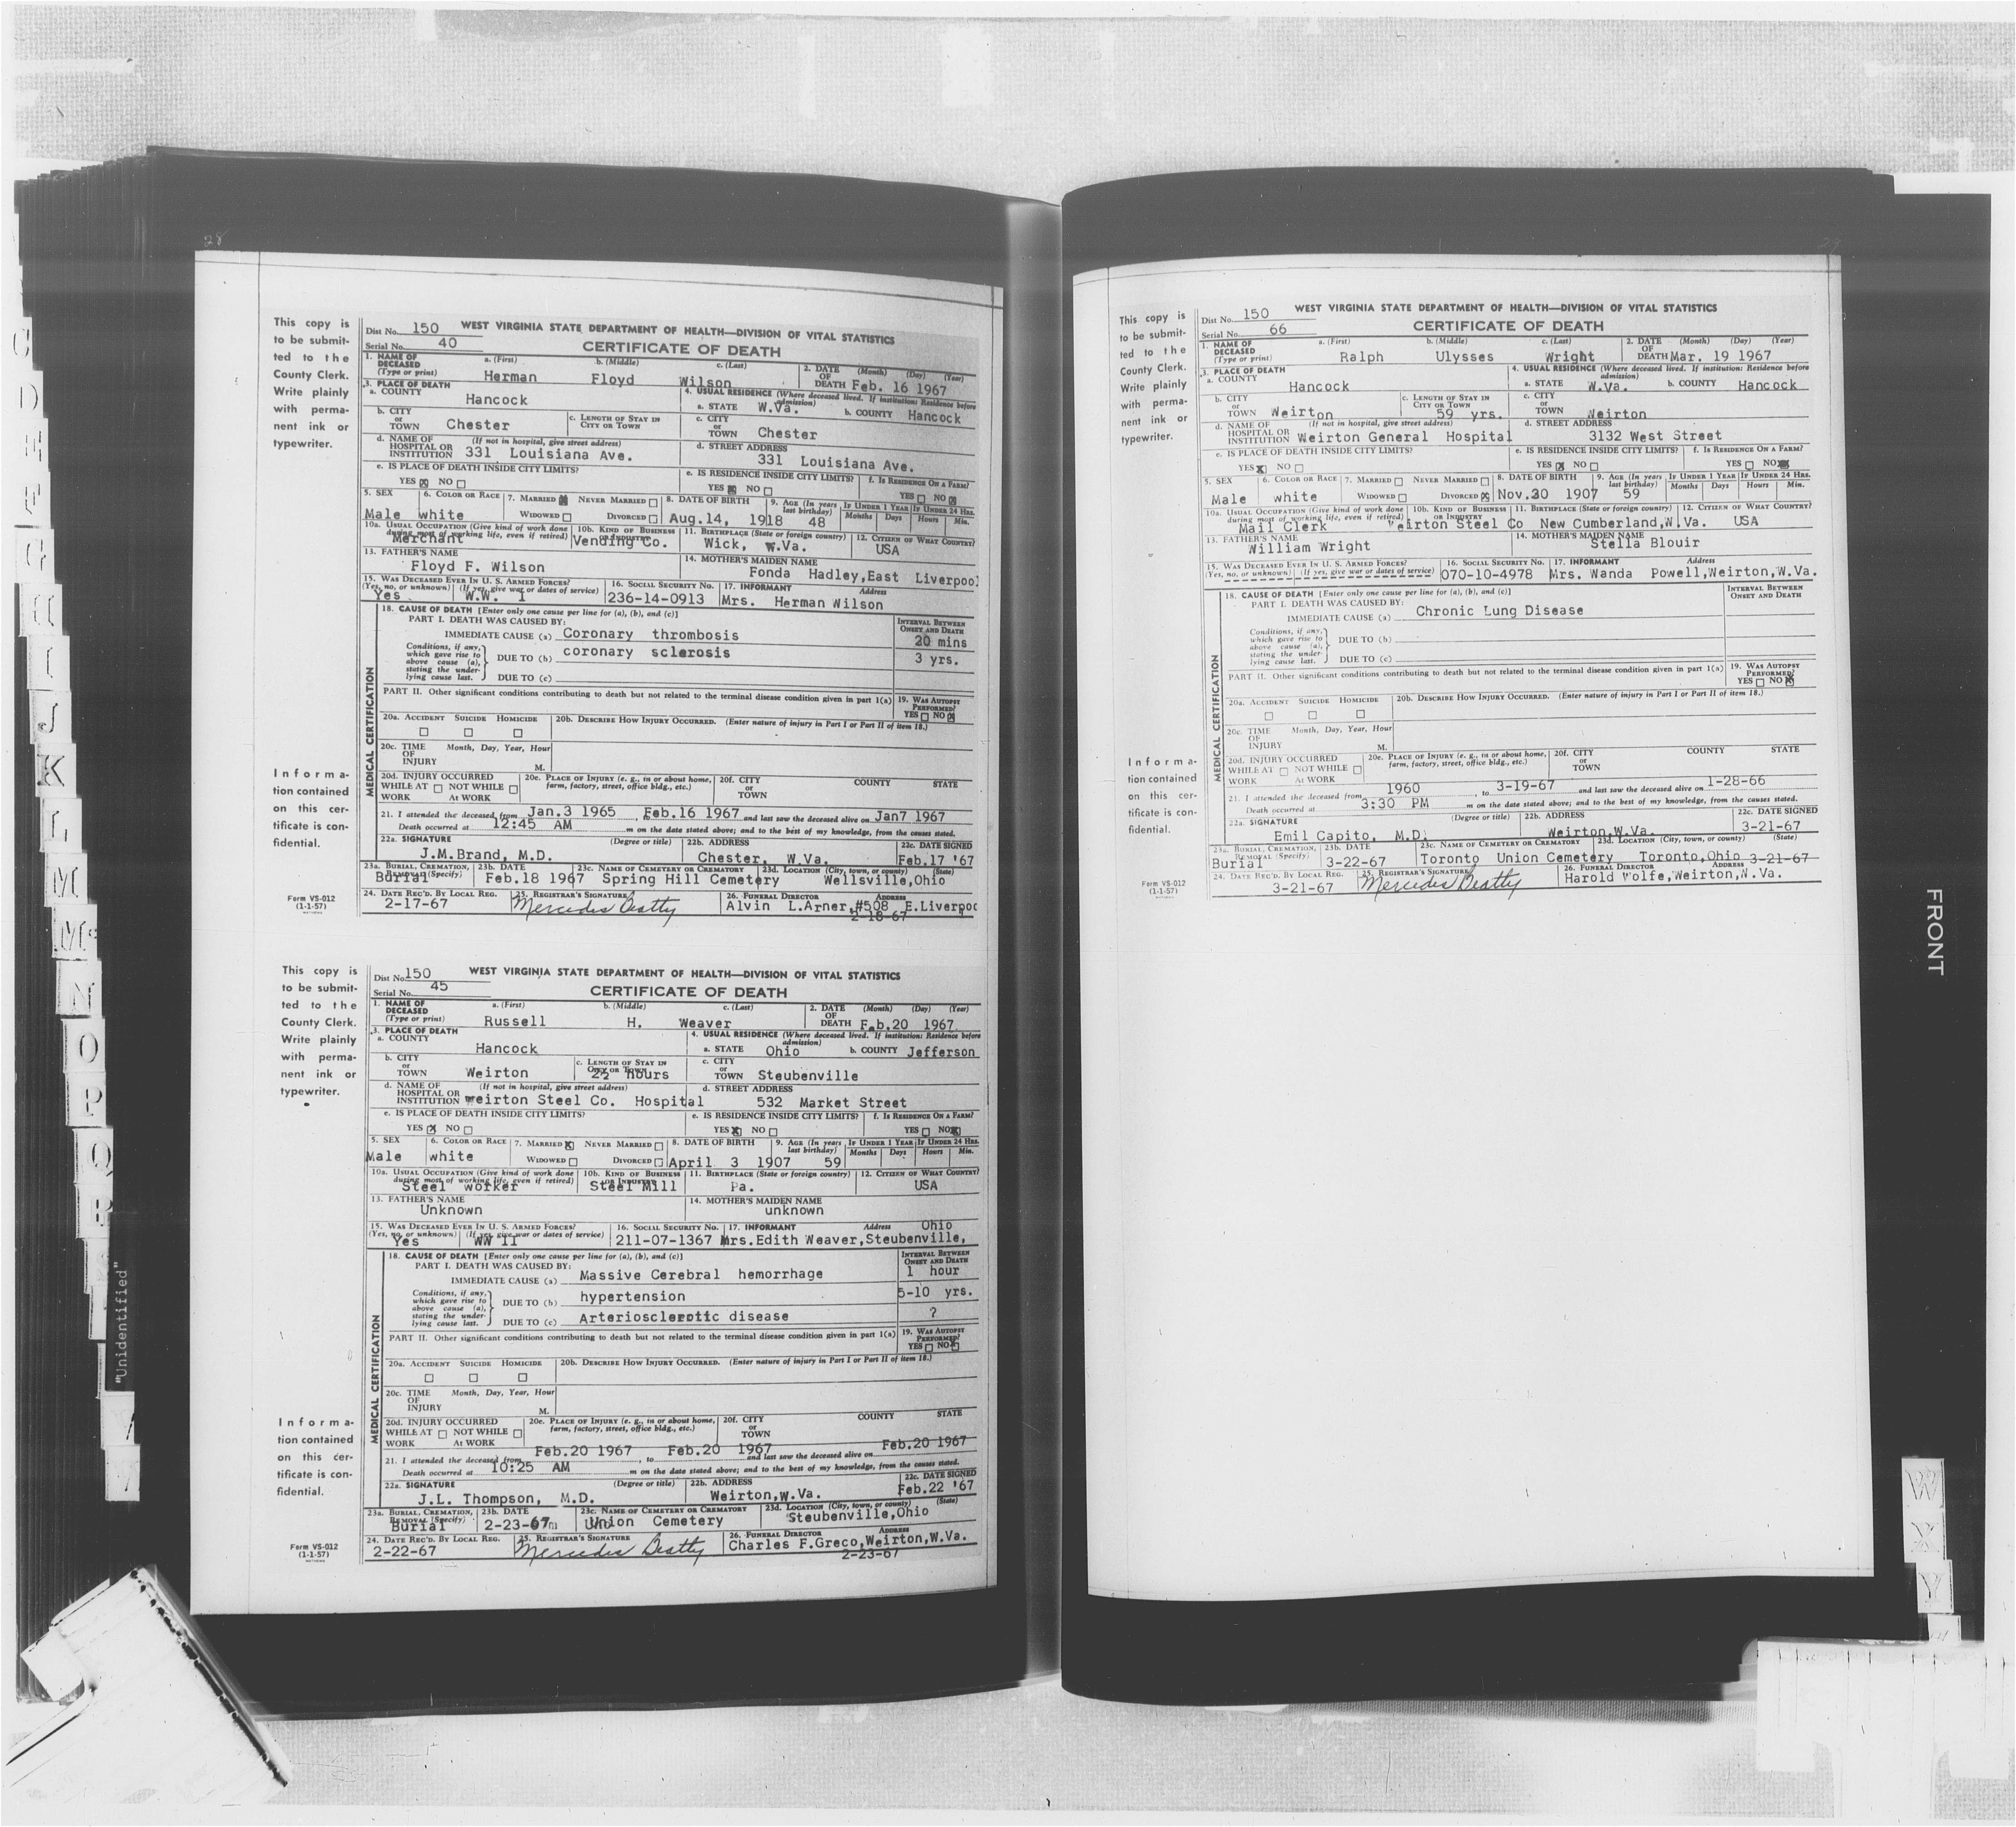 28
This copy is
to be submit-
ted to the
County Clerk.
Write plainly
with perma-
nent ink or
typewriter.
Dist No. 150 WEST VIRGINIA STATE DEPARTMENT OF HEALTH—DIVISION OF VITAL STATISTICS
Serial No. 40 CERTIFICATE OF DEATH
1. NAME OF DECEASED (Type or print) a. (First) Herman b. (Middle) Floyd c. (Last) Wilson 2. DATE OF DEATH (Month) (Day) (Year) Feb. 16 1967
3. PLACE OF DEATH a. COUNTY Hancock 4. USUAL RESIDENCE (Where deceased lived. If institution: Residence before admission) a. STATE W.Va. b. COUNTY Hancock
b. CITY or TOWN Chester c. LENGTH OF STAY IN CITY OR TOWN c. CITY or TOWN Chester
d. NAME OF HOSPITAL OR INSTITUTION (If not in hospital, give street address) 331 Louisiana Ave. d. STREET ADDRESS 331 Louisiana Ave.
e. IS PLACE OF DEATH INSIDE CITY LIMITS? YES NO e. IS RESIDENCE INSIDE CITY LIMITS? YES NO f. IS RESIDENCE ON A FARM? YES NO
5. SEX Male 6. COLOR OR RACE white 7. MARRIED NEVER MARRIED WIDOWED DIVORCED 8. DATE OF BIRTH Aug.14, 1918 9. AGE (In years last birthday) 48 IF UNDER 1 YEAR Months Days IF UNDER 24 HRS. Hours Min.
10a. USUAL OCCUPATION (Give kind of work done during most of working life, even if retired) Merchant 10b. KIND OF BUSINESS OR INDUSTRY Vending Co. 11. BIRTHPLACE (State or foreign country) Wick, W.Va. 12. CITIZEN OF WHAT COUNTRY? USA
13. FATHER'S NAME Floyd F. Wilson 14. MOTHER'S MAIDEN NAME Fonda Hadley,East Liverpool
15. WAS DECEASED EVER IN U. S. ARMED FORCES? (Yes, no, or unknown) (If yes, give war or dates of service) Yes W.W. 1 16. SOCIAL SECURITY NO. 236-14-0913 17. INFORMANT Address Mrs. Herman Wilson
MEDICAL CERTIFICATION
18. CAUSE OF DEATH [Enter only one cause per line for (a), (b), and (c)] INTERVAL BETWEEN ONSET AND DEATH
PART I. DEATH WAS CAUSED BY:
IMMEDIATE CAUSE (a) Coronary thrombosis 20 mins
Conditions, if any, which gave rise to above cause (a), stating the under-lying cause last. DUE TO (b) coronary sclerosis 3 yrs.
DUE TO (c)
PART II. Other significant conditions contributing to death but not related to the terminal disease condition given in part 1(a) 19. WAS AUTOPSY PERFORMED? YES NO
20a. ACCIDENT SUICIDE HOMICIDE 20b. DESCRIBE HOW INJURY OCCURRED. (Enter nature of injury in Part I or Part II of item 18.)
20c. TIME OF INJURY Month, Day, Year, Hour M.
20d. INJURY OCCURRED WHILE AT WORK NOT WHILE AT WORK 20e. PLACE OF INJURY (e. g., in or about home, farm, factory, street, office bldg., etc.) 20f. CITY or TOWN COUNTY STATE
21. I attended the deceased from Jan.3 1965, Feb.16 1967 and last saw the deceased alive on Jan7 1967
Death occurred at 12:45 AM m on the date stated above; and to the best of my knowledge, from the causes stated.
22a. SIGNATURE (Degree or title) J.M.Brand, M.D. 22b. ADDRESS Chester, W.Va. 22c. DATE SIGNED Feb.17 '67
23a. BURIAL, CREMATION, REMOVAL (Specify) Burial 23b. DATE Feb.18 1967 23c. NAME OF CEMETERY OR CREMATORY Spring Hill Cemetery 23d. LOCATION (City, town, or county) (State) Wellsville,Ohio
24. DATE REC'D. BY LOCAL REG. 2-17-67 25. REGISTRAR'S SIGNATURE Mercedes Beatty 26. FUNERAL DIRECTOR ADDRESS Alvin L.Arner,#508 E.Liverpoo
2-18-67
Informa-
tion contained
on this cer-
tificate is con-
fidential.
Form VS-012
(1-1-57)
This copy is
to be submit-
ted to the
County Clerk.
Write plainly
with perma-
nent ink or
typewriter.
Dist No. 150 WEST VIRGINIA STATE DEPARTMENT OF HEALTH—DIVISION OF VITAL STATISTICS
Serial No. 45 CERTIFICATE OF DEATH
1. NAME OF DECEASED (Type or print) a. (First) Russell b. (Middle) H. c. (Last) Weaver 2. DATE OF DEATH (Month) (Day) (Year) Feb.20 1967
3. PLACE OF DEATH a. COUNTY Hancock 4. USUAL RESIDENCE (Where deceased lived. If institution: Residence before admission) a. STATE Ohio b. COUNTY Jefferson
b. CITY or TOWN Weirton c. LENGTH OF STAY IN CITY OR TOWN 2½ hours c. CITY or TOWN Steubenville
d. NAME OF HOSPITAL OR INSTITUTION (If not in hospital, give street address) Weirton Steel Co. Hospital d. STREET ADDRESS 532 Market Street
e. IS PLACE OF DEATH INSIDE CITY LIMITS? YES NO e. IS RESIDENCE INSIDE CITY LIMITS? YES NO f. IS RESIDENCE ON A FARM? YES NO
5. SEX Male 6. COLOR OR RACE white 7. MARRIED NEVER MARRIED WIDOWED DIVORCED 8. DATE OF BIRTH April 3 1907 9. AGE (In years last birthday) 59 IF UNDER 1 YEAR Months Days IF UNDER 24 HRS. Hours Min.
10a. USUAL OCCUPATION (Give kind of work done during most of working life, even if retired) Steel worker 10b. KIND OF BUSINESS OR INDUSTRY Steel Mill 11. BIRTHPLACE (State or foreign country) Pa. 12. CITIZEN OF WHAT COUNTRY? USA
13. FATHER'S NAME Unknown 14. MOTHER'S MAIDEN NAME unknown
15. WAS DECEASED EVER IN U. S. ARMED FORCES? (Yes, no, or unknown) (If yes, give war or dates of service) Yes WW 11 16. SOCIAL SECURITY NO. 211-07-1367 17. INFORMANT Address Mrs.Edith Weaver,Steubenville, Ohio
MEDICAL CERTIFICATION
18. CAUSE OF DEATH [Enter only one cause per line for (a), (b), and (c)] INTERVAL BETWEEN ONSET AND DEATH
PART I. DEATH WAS CAUSED BY:
IMMEDIATE CAUSE (a) Massive Cerebral hemorrhage 1 hour
Conditions, if any, which gave rise to above cause (a), stating the under-lying cause last. DUE TO (b) hypertension 5-10 yrs.
DUE TO (c) Arteriosclerotic disease ?
PART II. Other significant conditions contributing to death but not related to the terminal disease condition given in part 1(a) 19. WAS AUTOPSY PERFORMED? YES NO
20a. ACCIDENT SUICIDE HOMICIDE 20b. DESCRIBE HOW INJURY OCCURRED. (Enter nature of injury in Part I or Part II of item 18.)
20c. TIME OF INJURY Month, Day, Year, Hour M.
20d. INJURY OCCURRED WHILE AT WORK NOT WHILE AT WORK 20e. PLACE OF INJURY (e. g., in or about home, farm, factory, street, office bldg., etc.) 20f. CITY or TOWN COUNTY STATE
21. I attended the deceased from Feb.20 1967, to Feb.20 1967 and last saw the deceased alive on Feb.20 1967
Death occurred at 10:25 AM m on the date stated above; and to the best of my knowledge, from the causes stated.
22a. SIGNATURE (Degree or title) J.L. Thompson, M.D. 22b. ADDRESS Weirton,W.Va. 22c. DATE SIGNED Feb.22 '67
23a. BURIAL, CREMATION, REMOVAL (Specify) Burial 23b. DATE 2-23-67 23c. NAME OF CEMETERY OR CREMATORY Union Cemetery 23d. LOCATION (City, town, or county) (State) Steubenville,Ohio
24. DATE REC'D. BY LOCAL REG. 2-22-67 25. REGISTRAR'S SIGNATURE Mercedes Beatty 26. FUNERAL DIRECTOR ADDRESS Charles F.Greco,Weirton,W.Va.
2-23-67
Informa-
tion contained
on this cer-
tificate is con-
fidential.
Form VS-012
(1-1-57)
29
This copy is
to be submit-
ted to the
County Clerk.
Write plainly
with perma-
nent ink or
typewriter.
Dist No. 150 WEST VIRGINIA STATE DEPARTMENT OF HEALTH—DIVISION OF VITAL STATISTICS
Serial No. 66 CERTIFICATE OF DEATH
1. NAME OF DECEASED (Type or print) a. (First) Ralph b. (Middle) Ulysses c. (Last) Wright 2. DATE OF DEATH (Month) (Day) (Year) Mar. 19 1967
3. PLACE OF DEATH a. COUNTY Hancock 4. USUAL RESIDENCE (Where deceased lived. If institution: Residence before admission) a. STATE W.Va. b. COUNTY Hancock
b. CITY or TOWN Weirton c. LENGTH OF STAY IN CITY OR TOWN 59 yrs. c. CITY or TOWN Weirton
d. NAME OF HOSPITAL OR INSTITUTION (If not in hospital, give street address) Weirton General Hospital d. STREET ADDRESS 3132 West Street
e. IS PLACE OF DEATH INSIDE CITY LIMITS? YES NO e. IS RESIDENCE INSIDE CITY LIMITS? YES NO f. IS RESIDENCE ON A FARM? YES NO
5. SEX Male 6. COLOR OR RACE white 7. MARRIED NEVER MARRIED WIDOWED DIVORCED 8. DATE OF BIRTH Nov.30 1907 9. AGE (In years last birthday) 59 IF UNDER 1 YEAR Months Days IF UNDER 24 HRS. Hours Min.
10a. USUAL OCCUPATION (Give kind of work done during most of working life, even if retired) Mail Clerk 10b. KIND OF BUSINESS OR INDUSTRY Weirton Steel Co 11. BIRTHPLACE (State or foreign country) New Cumberland,W.Va. 12. CITIZEN OF WHAT COUNTRY? USA
13. FATHER'S NAME William Wright 14. MOTHER'S MAIDEN NAME Stella Blouir
15. WAS DECEASED EVER IN U. S. ARMED FORCES? (Yes, no, or unknown) (If yes, give war or dates of service) 16. SOCIAL SECURITY NO. 070-10-4978 17. INFORMANT Address Mrs. Wanda Powell,Weirton,W.Va.
MEDICAL CERTIFICATION
18. CAUSE OF DEATH [Enter only one cause per line for (a), (b), and (c)] INTERVAL BETWEEN ONSET AND DEATH
PART I. DEATH WAS CAUSED BY:
IMMEDIATE CAUSE (a) Chronic Lung Disease
Conditions, if any, which gave rise to above cause (a), stating the under-lying cause last. DUE TO (b)
DUE TO (c)
PART II. Other significant conditions contributing to death but not related to the terminal disease condition given in part 1(a) 19. WAS AUTOPSY PERFORMED? YES NO
20a. ACCIDENT SUICIDE HOMICIDE 20b. DESCRIBE HOW INJURY OCCURRED. (Enter nature of injury in Part I or Part II of item 18.)
20c. TIME OF INJURY Month, Day, Year, Hour M.
20d. INJURY OCCURRED WHILE AT WORK NOT WHILE AT WORK 20e. PLACE OF INJURY (e. g., in or about home, farm, factory, street, office bldg., etc.) 20f. CITY or TOWN COUNTY STATE
21. I attended the deceased from 1960, to 3-19-67 and last saw the deceased alive on 1-28-66
Death occurred at 3:30 PM m on the date stated above; and to the best of my knowledge, from the causes stated.
22a. SIGNATURE (Degree or title) Emil Capito, M.D. 22b. ADDRESS Weirton,W.Va. 22c. DATE SIGNED 3-21-67
23a. BURIAL, CREMATION, REMOVAL (Specify) Burial 23b. DATE 3-22-67 23c. NAME OF CEMETERY OR CREMATORY Toronto Union Cemetery 23d. LOCATION (City, town, or county) (State) Toronto,Ohio 3-21-67
24. DATE REC'D. BY LOCAL REG. 3-21-67 25. REGISTRAR'S SIGNATURE Mercedes Beatty 26. FUNERAL DIRECTOR ADDRESS Harold Wolfe,Weirton,W.Va.
Informa-
tion contained
on this cer-
tificate is con-
fidential.
Form VS-012
(1-1-57)
FRONT
"Unidentified"
J
K
L
M
Mc
N
O
P
Q
R
W
X
Y